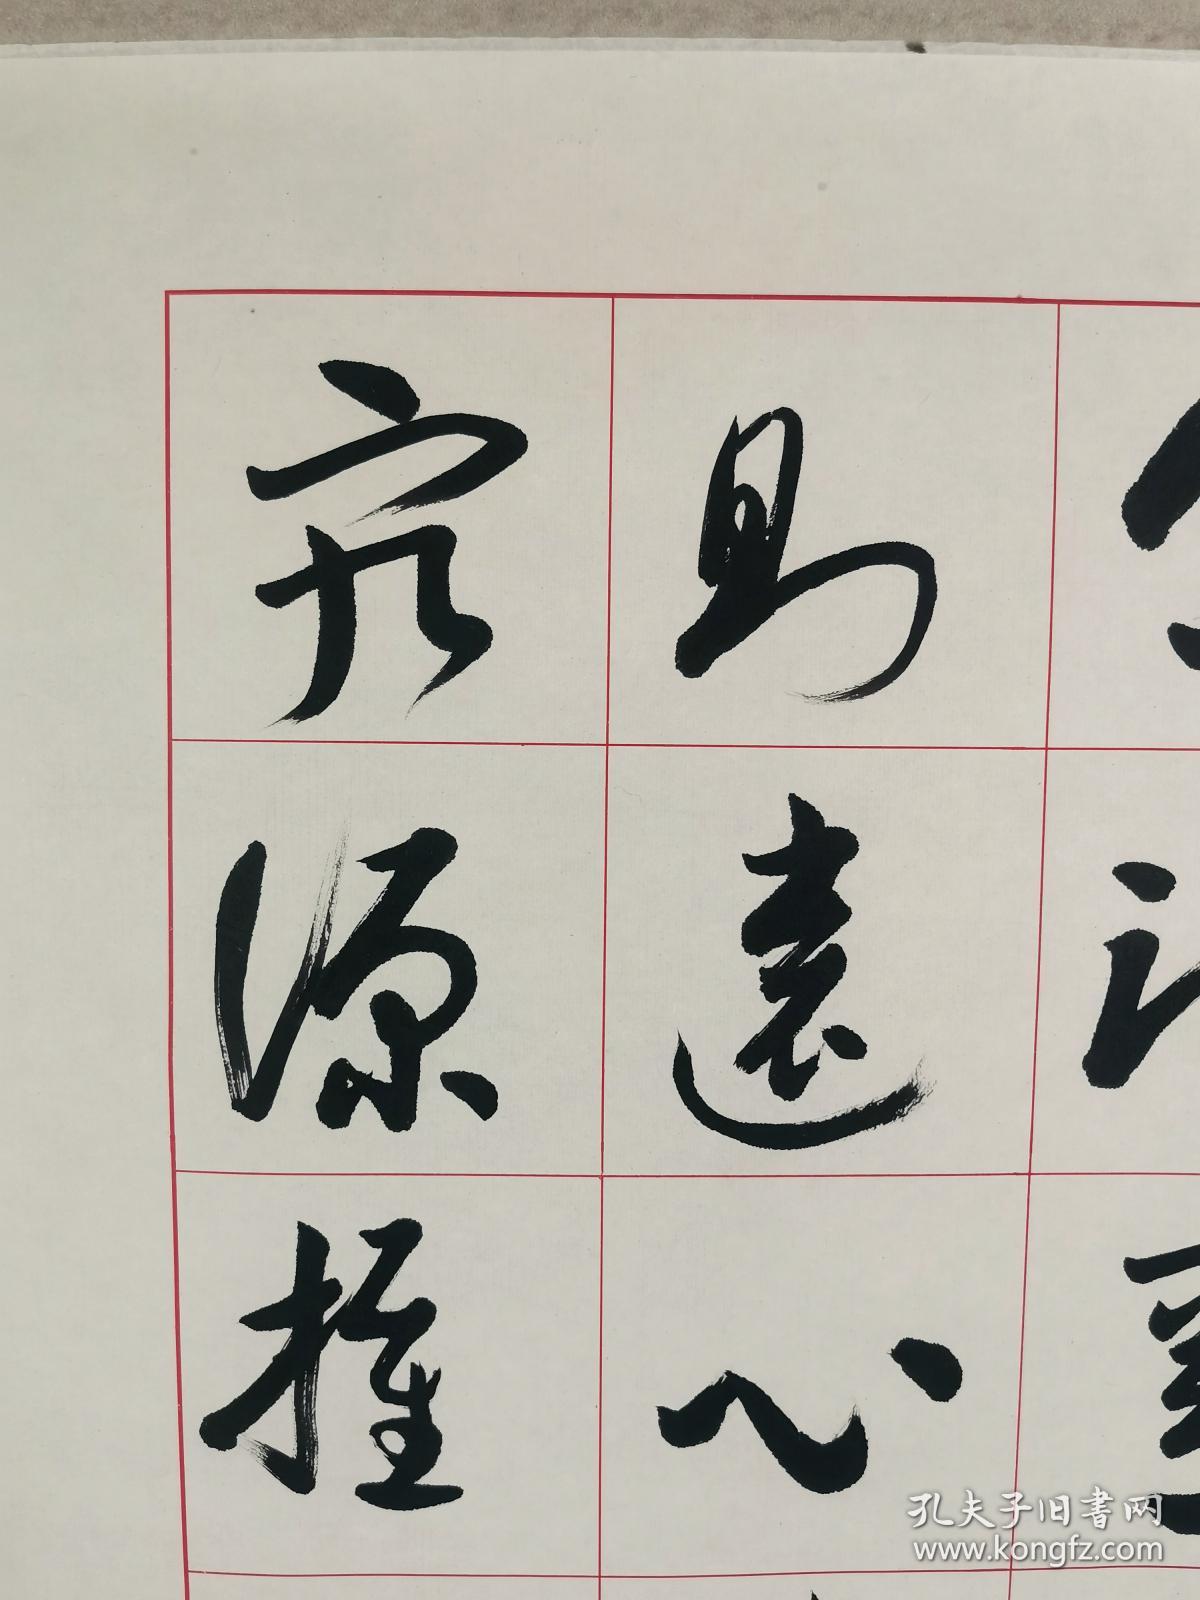 則遠心
究源握
孔夫子旧書网
www.kongfz.com